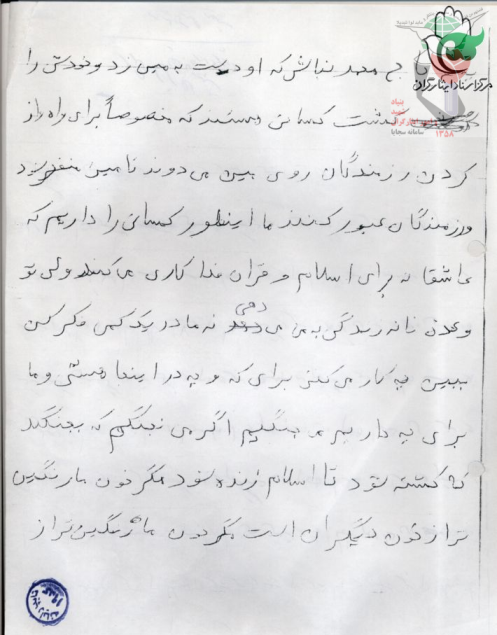 مرکز اسناد ایثارگران
بنیاد
سامانه سجایا
۱۳۵۸
محمد نباش که او دست به مین زد و خودش را
گذشت کسانی هستند که مخصوصاً برای راه باز
کردن رزمندگان روی مین می دوند تا مین منفجر شود
و رزمندگان عبور کنند ما اینطور کسانی را داریم که
عاشقانه برای اسلام و قران فدا کاری می کنند ولی تو
وعده خانه زندگی به من می دهی نه مادر یک کمی فکر کن
ببین چه کار می کنی برای که و چه در اینجا هستی و ما
برای چه داریم می جنگیم اگر من نجنگم که بجنگد
که کشته شود تا اسلام زنده شود مگر خون ما رنگین
تر از خون دیگران است مگر خون ما رنگین تر از